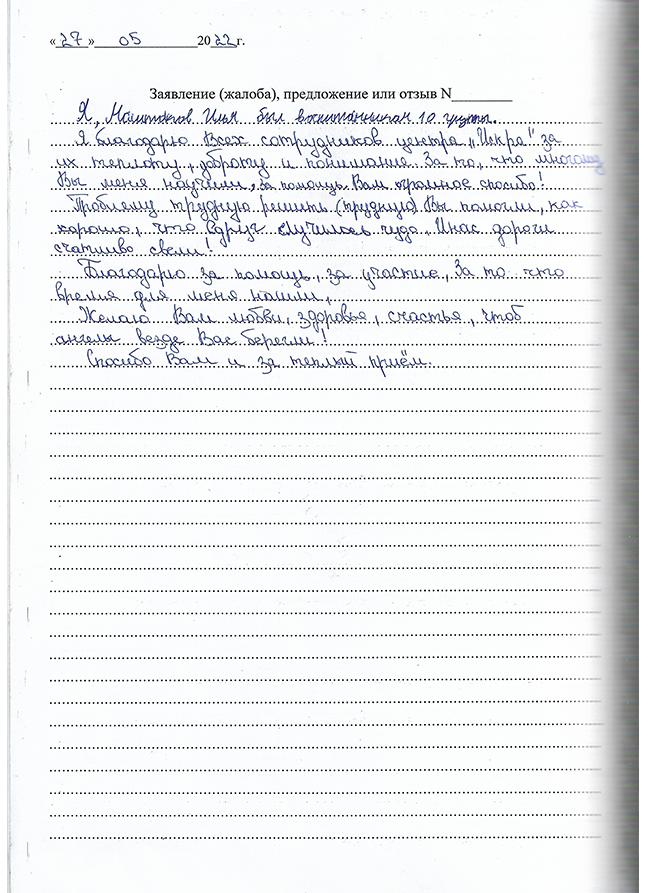 «27» 05 2022 г.
Заявление (жалоба), предложение или отзыв N
Я, Маштаков Илья был воспитанником 10 группы.
Я благодарю Всех сотрудников центра „Искра" за
их теплоту, доброту и понимание. За то, что многому
Вы меня научили, за помощь Вам огромное спасибо!
Проблему трудную решить (трудную) Вы помогли, как
хорошо, что вдруг случилось чудо. И нас дороги
счастливо свели!
Благодарю за помощь, за участие, За то что
время для меня нашли,
Желаю Вам любви, здоровья, счастья, чтоб
ангелы везде Вас берегли!
Спасибо Вам и за теплый приём.